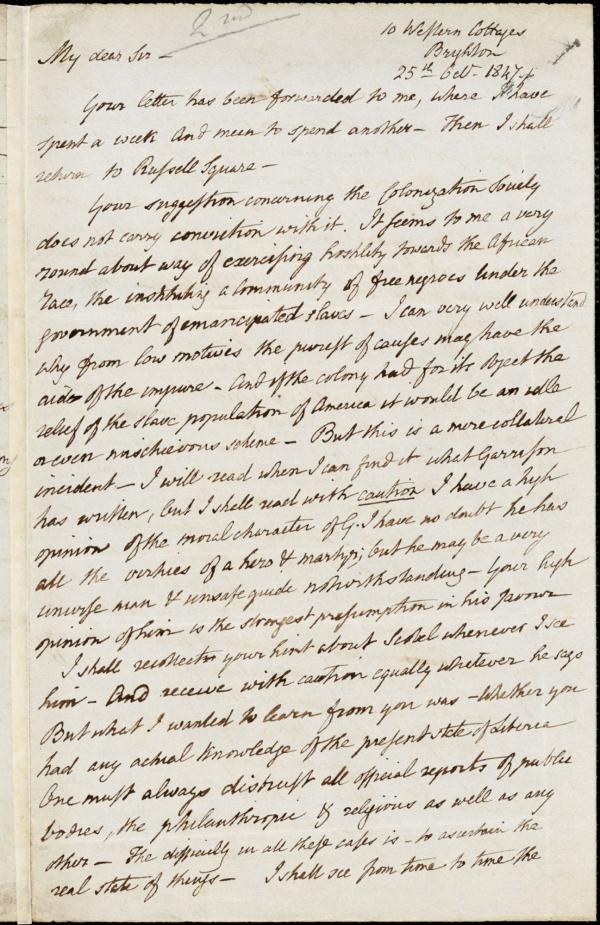 2nd
10 Western Cottages
Brighton
25th Octr. 1847
My dear Sir –
Your letter has been forwarded to me, where I have
spent a week and mean to spend another – Then I shall
return to Russell Square –
Your suggestion concerning the Colonization Society
does not carry conviction with it. It seems to me a very
round about way of exercising hostility towards the African
race, the instituting a Community of free negroes under the
government of emancipated slaves – I can very well understand
why from low motives the purest of causes may have the
aid of the impure – And if the colony had for its object the
relief of the slave population of America it would be an idle
or even mischievous scheme – But this is a mere collateral
incident – I will read when I can find it what Garrison
has written, but I shall read with caution I have a high
opinion of the moral character of G. I have no doubt he has
all the virtues of a hero & martyr; but he may be a very
unwise man & unsafe guide notwithstanding – Your high
opinion of him is the strongest presumption in his favour
I shall recollect your hint about whenever I see
him – And receive with caution equally whatever he says
But what I wanted to learn from you was – whether you
had any actual knowledge of the present state of Liberia
One must always distrust all official reports of public
bodies, the philanthropic & religious as well as any
other – The difficulty in all these cases is – to ascertain the
real state of things – I shall see from time to time the